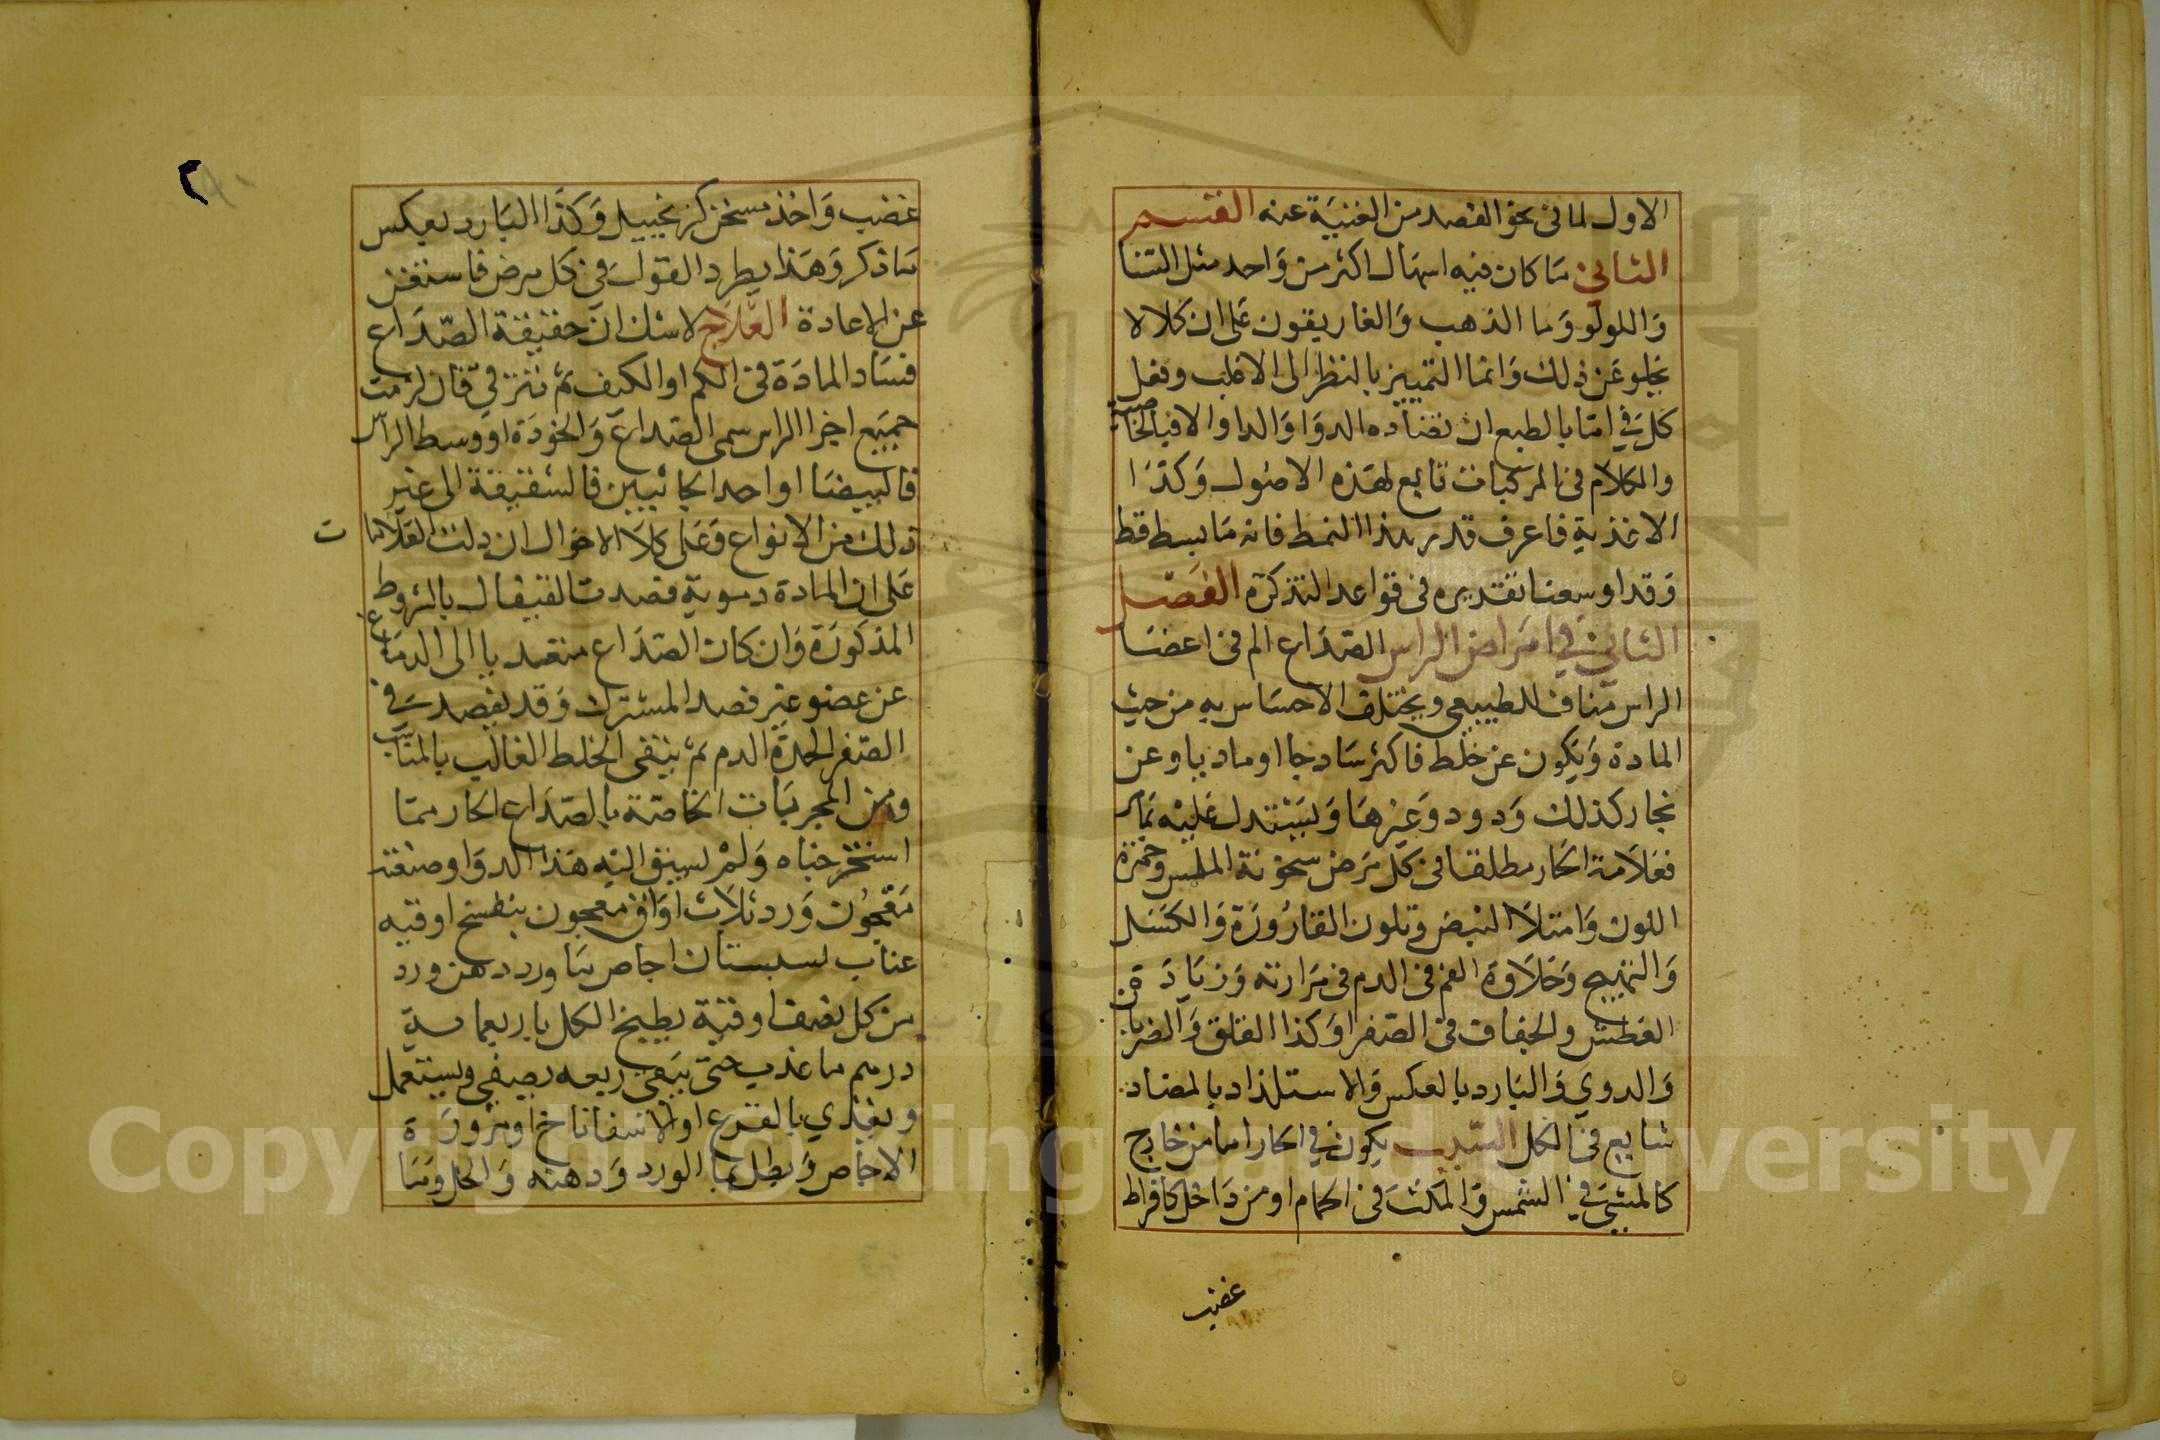 الاول لما في نحو الفصد من الغنية عنه القسم
الثاني ما كان فيه اسهال اكثر من واحد مثل السنا
واللولو وما الذهب والغاريقون على ان كلا لا
يخلو عن ذلك وانما التمييز بالنظر الى الاغلب وفعل
كل في اما بالطبع ان تضاده الدوا والدا والا فبالخاصية
والكلام في المركبات تابع لهذه الاصول وكذا
الاغذية فاعرف قدر هذا النمط فانه ما بسط قط
وقد اوسعنا تقديره في قواعد التذكرة الفصل
الثاني في امراض الراس الصداع الم في اعضا
الراس مناف للطبيعي ويختلف الاحساس به من حيث
المادة ويكون عن خلط فاكثر سادجا او ماديا وعن
بخار كذلك ودود وغيرها ويستدل عليه بما مر
فعلامة الحار مطلقا في كل مرض سخونة الملمس وحمرة
اللون وامتلا النبض وتلون القارورة والكسل
والتهيج وحلاوة الفم في الدم في مرارته وزيادة
العطش والجفاف في الصفرا وكذا القلق والضربان
والدوي والبارد بالعكس والاستلذاد بالمضاد
شايع في الكل السبب يكون في الحار اما من خارج
كالمشي في الشمس والمكث في الحمام او من داخل كافراط
غضب
غضب واخذ مسخن كزنجبيل وكذا البارد بعكس
ما ذكر وهذا يطرد القول في كل مرض فاستغن
عن الاعادة العلاج لا شك ان حقيقة الصداع
فساد المادة في الكم او الكيف ثم تترقي فان لزمت
جميع اجزا الراس سمي الصداع والخودة او وسط الراس
فالبيضا او احد الجانبين فالشقيقة الى غير
ذلك من الانواع وعلى كلا الاحوال ان دلت العلاما ت
على ان المادة دموية فصدت القيفال بالشروط
المذكورة وان كان الصداع متعديا الى الدماغ
عن عضو غير فصد المشترك وقد يفصد في
الصفرا لحدة الدم ثم ينقى الخلط الغالب بالمناسب
ومن المجربات الخاصة بالصداع الحار مما
استخرجناه ولم نسبق اليه هذا الدوا وصنعته
معجون ورد ثلاث اواق معجون بنفسج اوقيه
عناب سبستان اجاص ما ورد دهن ورد
من كل نصف اوقية يطبخ الكل باربعماية
درهم ما عذب حتى يبقى ربعه يصفي ويستعمل
ويغذي بالقرع او الاسفاناخ او مزورة
الاجاص ويطلى بما الورد ودهنه والخل وما